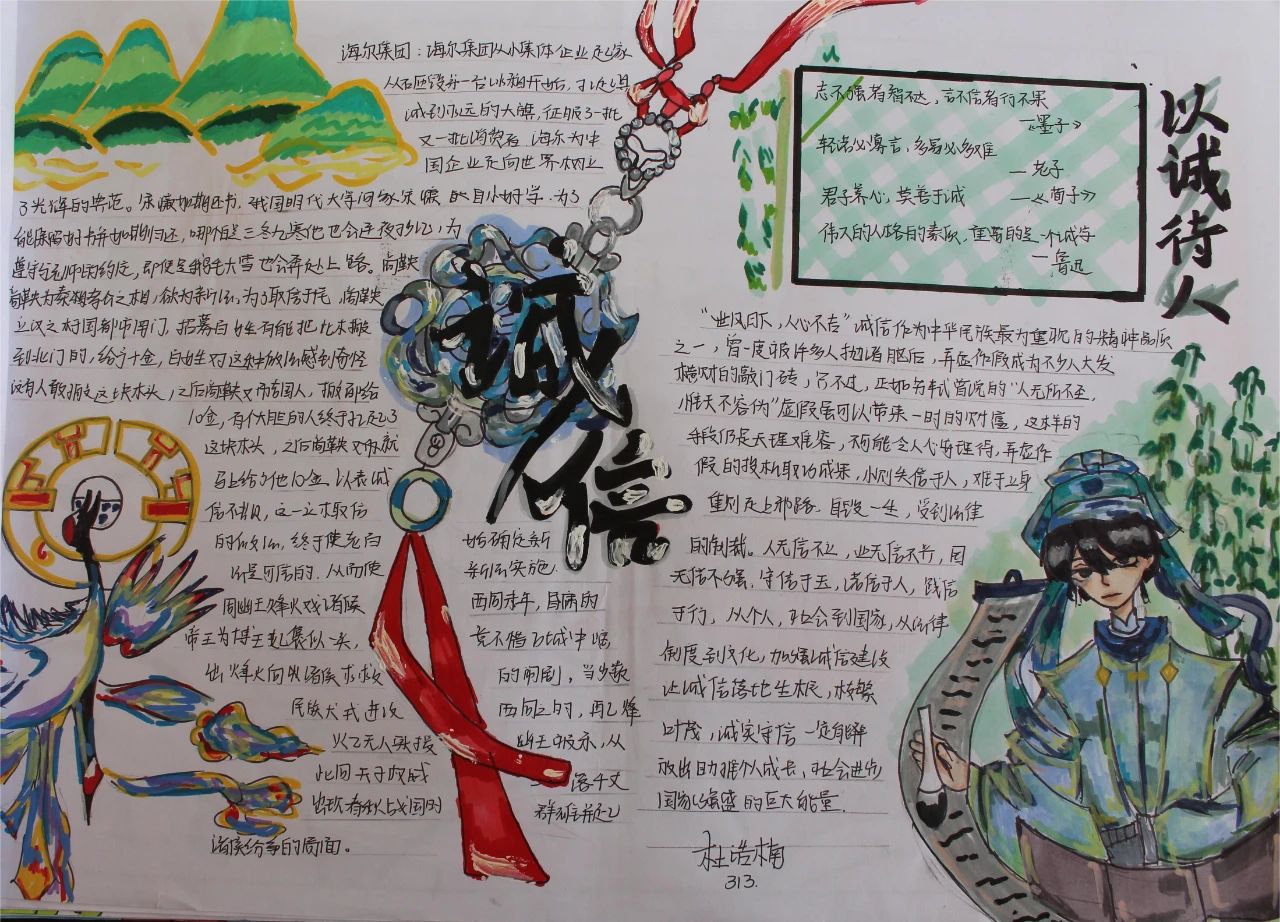 海尔集团：海尔集团从小集体企业起家
从砸毁第一台冰箱开始，扛起真
诚到永远的大旗，征服了一批
又一批消费者，海尔为中
国企业走向世界树立
了光辉的典范。宋濂如期还书，我国明代大学问家宋濂自小好学，为了
能保留好书并如期归还，哪怕是三冬九寒他也会连夜抄记，为
遵守与先师的约定，即便是鹅毛大雪也会奔赴上路。商鞅
商鞅为秦相为之相，欲为新法，为了取信于民，商鞅
立汉之木于国都市南门，招募百姓有能把此木搬
到北门的，给予十金，百姓对这种做法感到奇怪
没有人敢搬这块木头，之后商鞅又布告国人，搬者给
10金，有个大胆的人终于扛起了
这块木头，之后商鞅又
马上给了他10金，以表诚
信不欺，这一立木取信
的做法，终于使老百 姓确定新
法是可信的，从而使 新法实施
周幽王烽火戏诸侯 西周末年，昏庸的
帝王为博王妃褒姒一笑， 竟不惜在城中
出烽火向 诸侯求救 的闹剧，当少数
民族犬戎进攻 西周之时，再
火已无人驰援 幽王被杀，从
此周天子权威 一落千丈
出现春秋战国时 群雄并起
诸侯纷争的局面。
诚信
志不强者智不达，言不信者行不果
—《墨子》
轻诺必寡言，多易必多难
— 老子
君子养心，莫善于诚 —《荀子》
伟大的人格的素质，重要的是一个诚字
— 鲁迅
以诚待人
“世风日下，人心不古”诚信作为中华民族最为重视的精神品质
之一，曾一度被许多人抛诸脑后，弄虚作假成为不少人大发
横财的敲门砖，只不过，正如苏轼曾说的“人无所不至，
惟天不容伪”虚假虽可以带来一时的财富，这样的
手段仍是天理难容，不可能令人心安理得，弄虚作
假的投机取巧成果，小则失信于人，难于立身
重则走上邪路，自毁一生，受到法律
的制裁。人无信不立，业无信不兴，国
无信不强，守信于玉，诺信于人，践信
于行，从个人，社会到国家，从法律
制度到文化，加强诚信建设
让诚信落地生根，枝繁
叶茂，诚实守信一定能释
放出助推个人成长，社会进步
国家强盛的巨大能量。
杜浩楠
313.